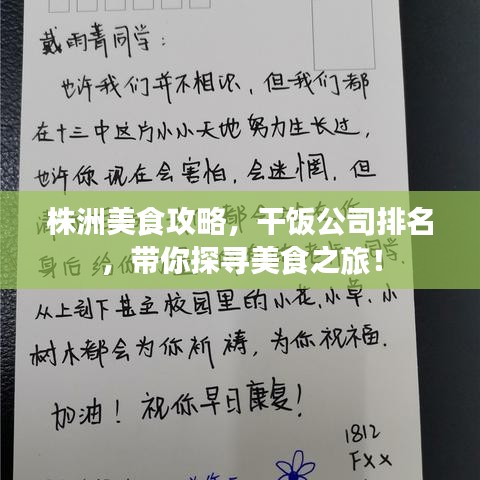 戴雨菁同学：
也许我们并不相识，但我们都
在十三中这片小小天地努力生长过，
也许你现在会害怕，会迷惘，但
株洲美食攻略，干饭公司排名
，带你探寻美食之旅！
身后给你
同学，
从上到下甚至校园里的小花、小草、小
树木都会为你祈祷，为你祝福。
加油！祝你早日康复！
1812
Fxx